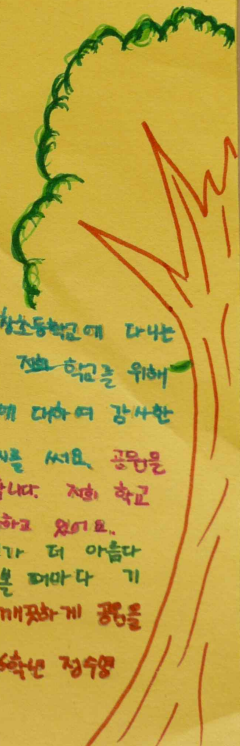 초등학교에 다니는
저희 학교를 위해
에 대하여 감사한
를 써요. 공원을
합니다. 저희 학교
하고 있어요..
가 더 아름다
볼 때마다 기
깨끗하게 공원을
6학년 정수영